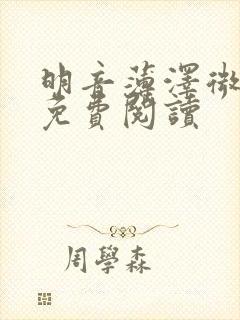 明音薄澤微
免費閱讀
周學森